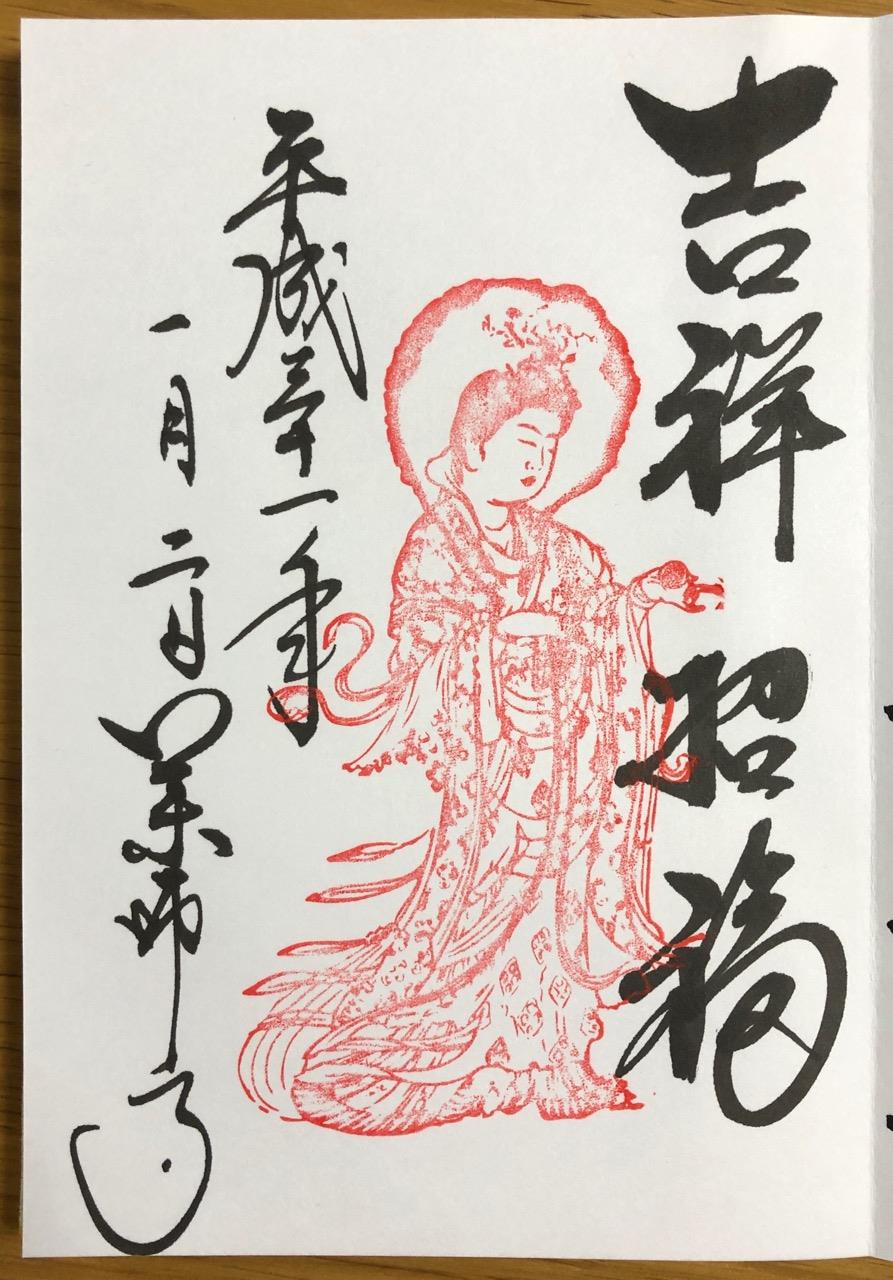 吉祥招福
平成三十一年
一月二日 薬師寺